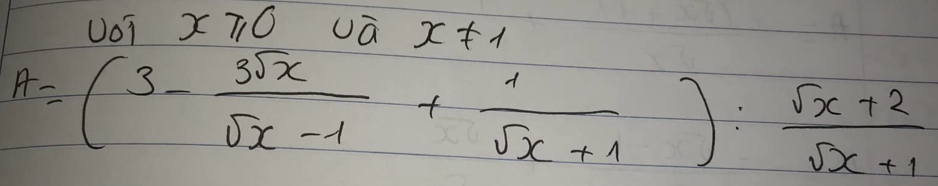 với x ≥ 0 và x ≠ 1
A = ( 3 - 3√x / (√x - 1) + 1 / (√x + 1) ) : (√x + 2) / (√x + 1)